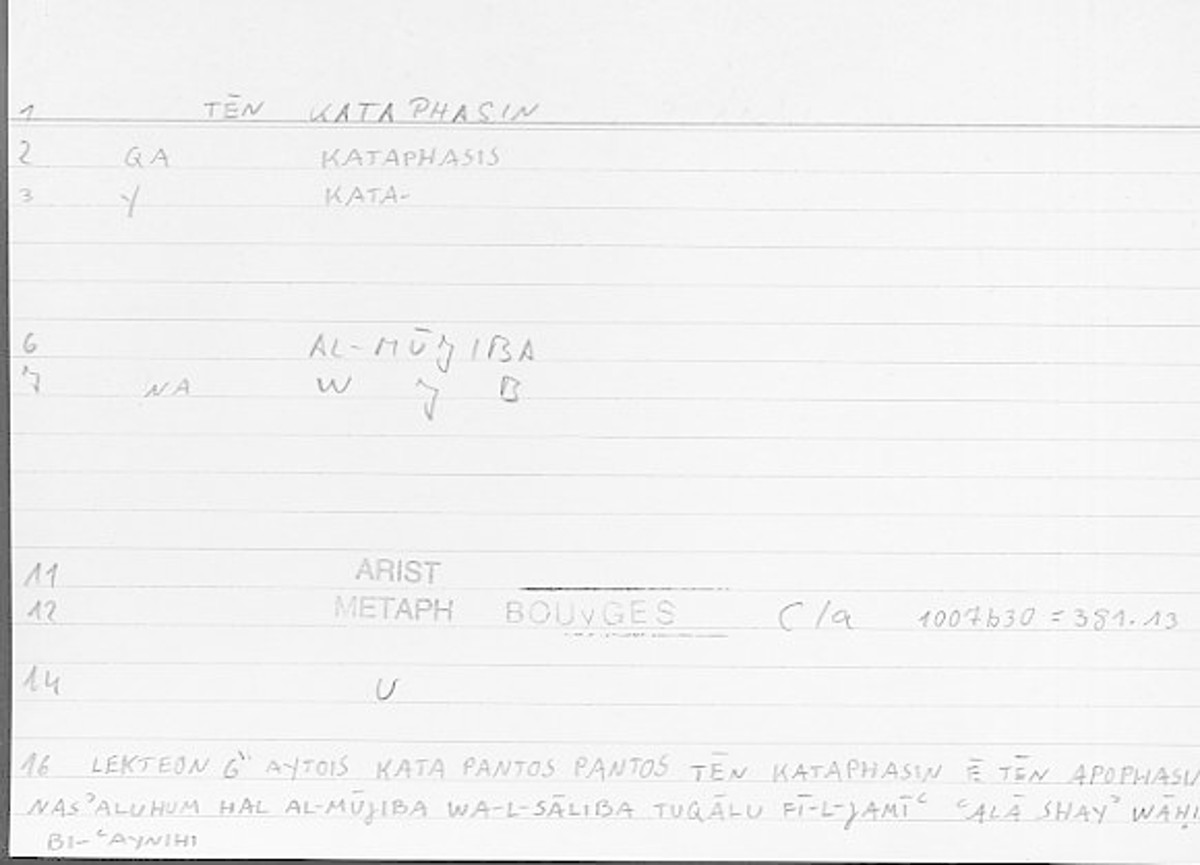 1 TĒN KATAPHASIN
2 QA KATAPHASIS
3 Y KATA-
6 AL-MŪJIBA
7 NA W J B
11 ARIST
12 METAPH BOUYGES C/a 1007b30 = 381.13
14 U
16 LEKTEON G' AYTOIS KATA PANTOS PANTOS TĒN KATAPHASIN Ē TĒN APOPHASI
NASʾALUHUM HAL AL-MŪJIBA WA-L-SĀLIBA TUQĀLU FĪ-L-JAMĪʿ ʿALĀ SHAYʾ WĀḤI
BI-ʿAYNIHI